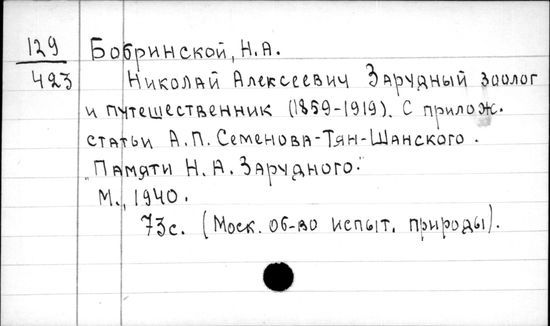 129 Бобринской, Н.А.
423 Николай Алексеевич Зарудный зоолог
и путешественник (1859-1919). С прилож.
статьи А.П. Семенова-Тян-Шанского.
"Памяти Н.А. Зарудного."
М., 1940.
73с. (Моск. об-во испыт. природы).